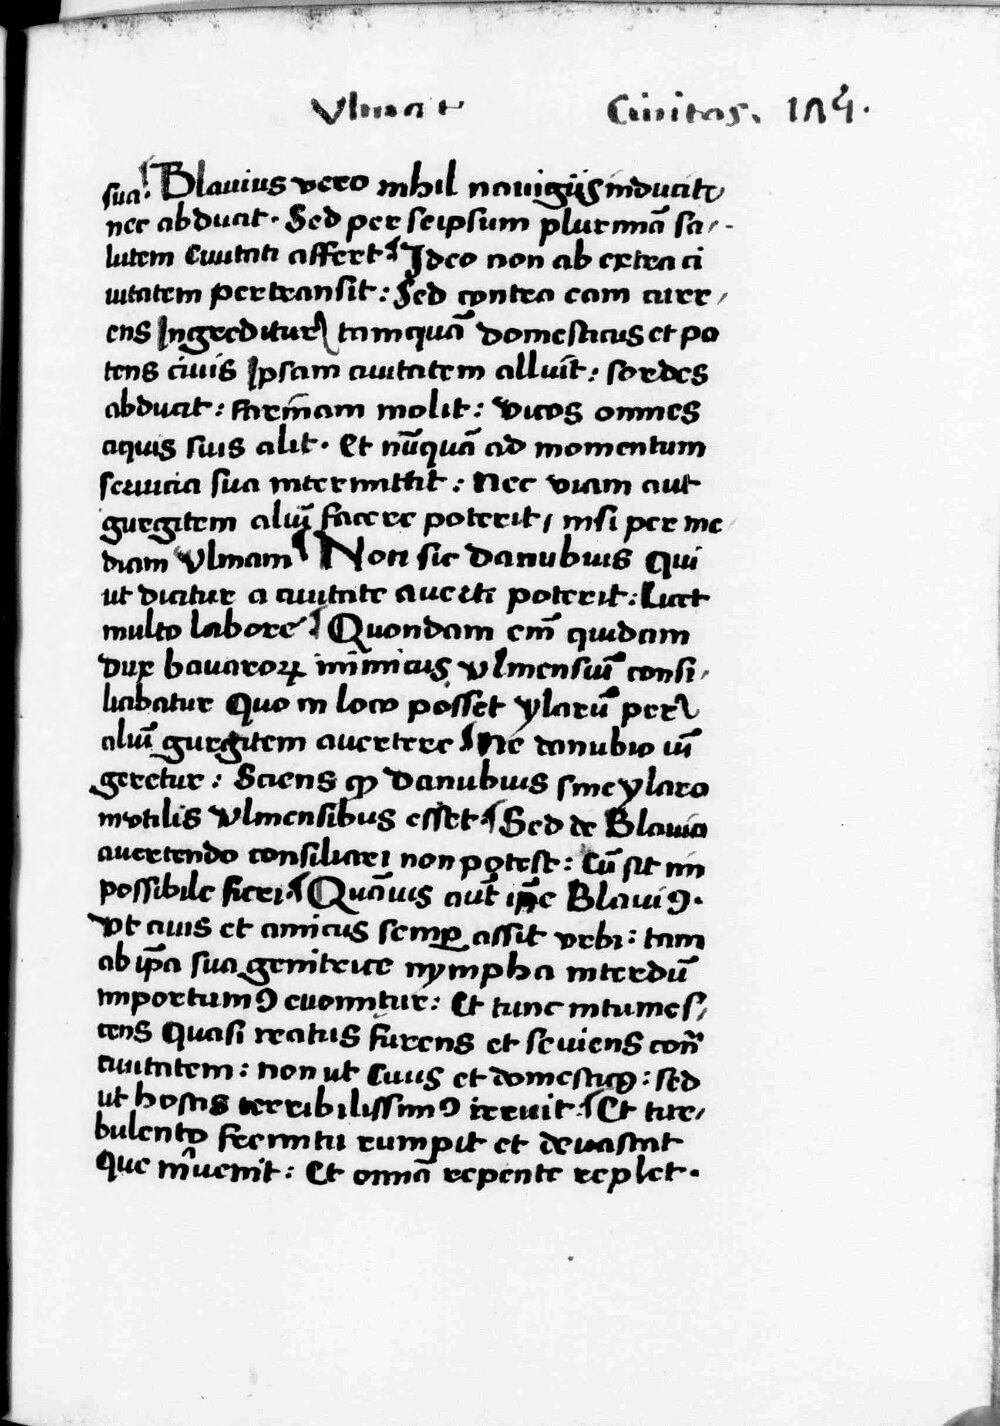 Vlma t Ciuitas. 174.
sua. Blauius vero nihil nauigijs inducit,
nec abducit. Sed per seipsum plurimā sa-
lutem Ciuitati affert Ideo non ab extra ci
uitatem pertransit: Sed contra eam curr,
ens Ingreditur tamquā domesticus et po
tens ciuis Ipsam ciuitatem alluit: sordes
abducit: farinam molit: vicos omnes
aquis suis alit. Et nūquā ad momentum
seruicia sua intermittit: Nec viam aut
gurgitem aliū facere poterit, nisi per me
diam Vlmam Non sic danubius Qui
ut dicitur a ciuitate auerti poterit: Licet
multo labore Quondam em̄ quidam
dux bauaroꝝ inimicus vlmensiū consi,
liabatur Quo in loco posset ylarū per
aliū gurgitem auertere Ne danubio iū
geretur: Sciens ꝙ danubius sine ylaro
inutilis Vlmensibus esset Sed de Blauia
auertendo consiliari non potest: Cū sit im
possibile fieri Quāuis aūt ip̄e Blauiꝰ.
Vt ciuis et amicus semꝑ assit vrbi: tam
ab ip̄a sua genitrice nympha interdū
importuniꝰ euomitur: Et tunc intumes,
cens Quasi reatus furens et seuiens con̄
ciuitatem: non ut Ciuis et domesticꝰ: sed
ut hostis terribilissimꝰ irruit Et tur,
bulento fremitu rumpit et deuastat
Que inuenit: Et omnia repente replet.